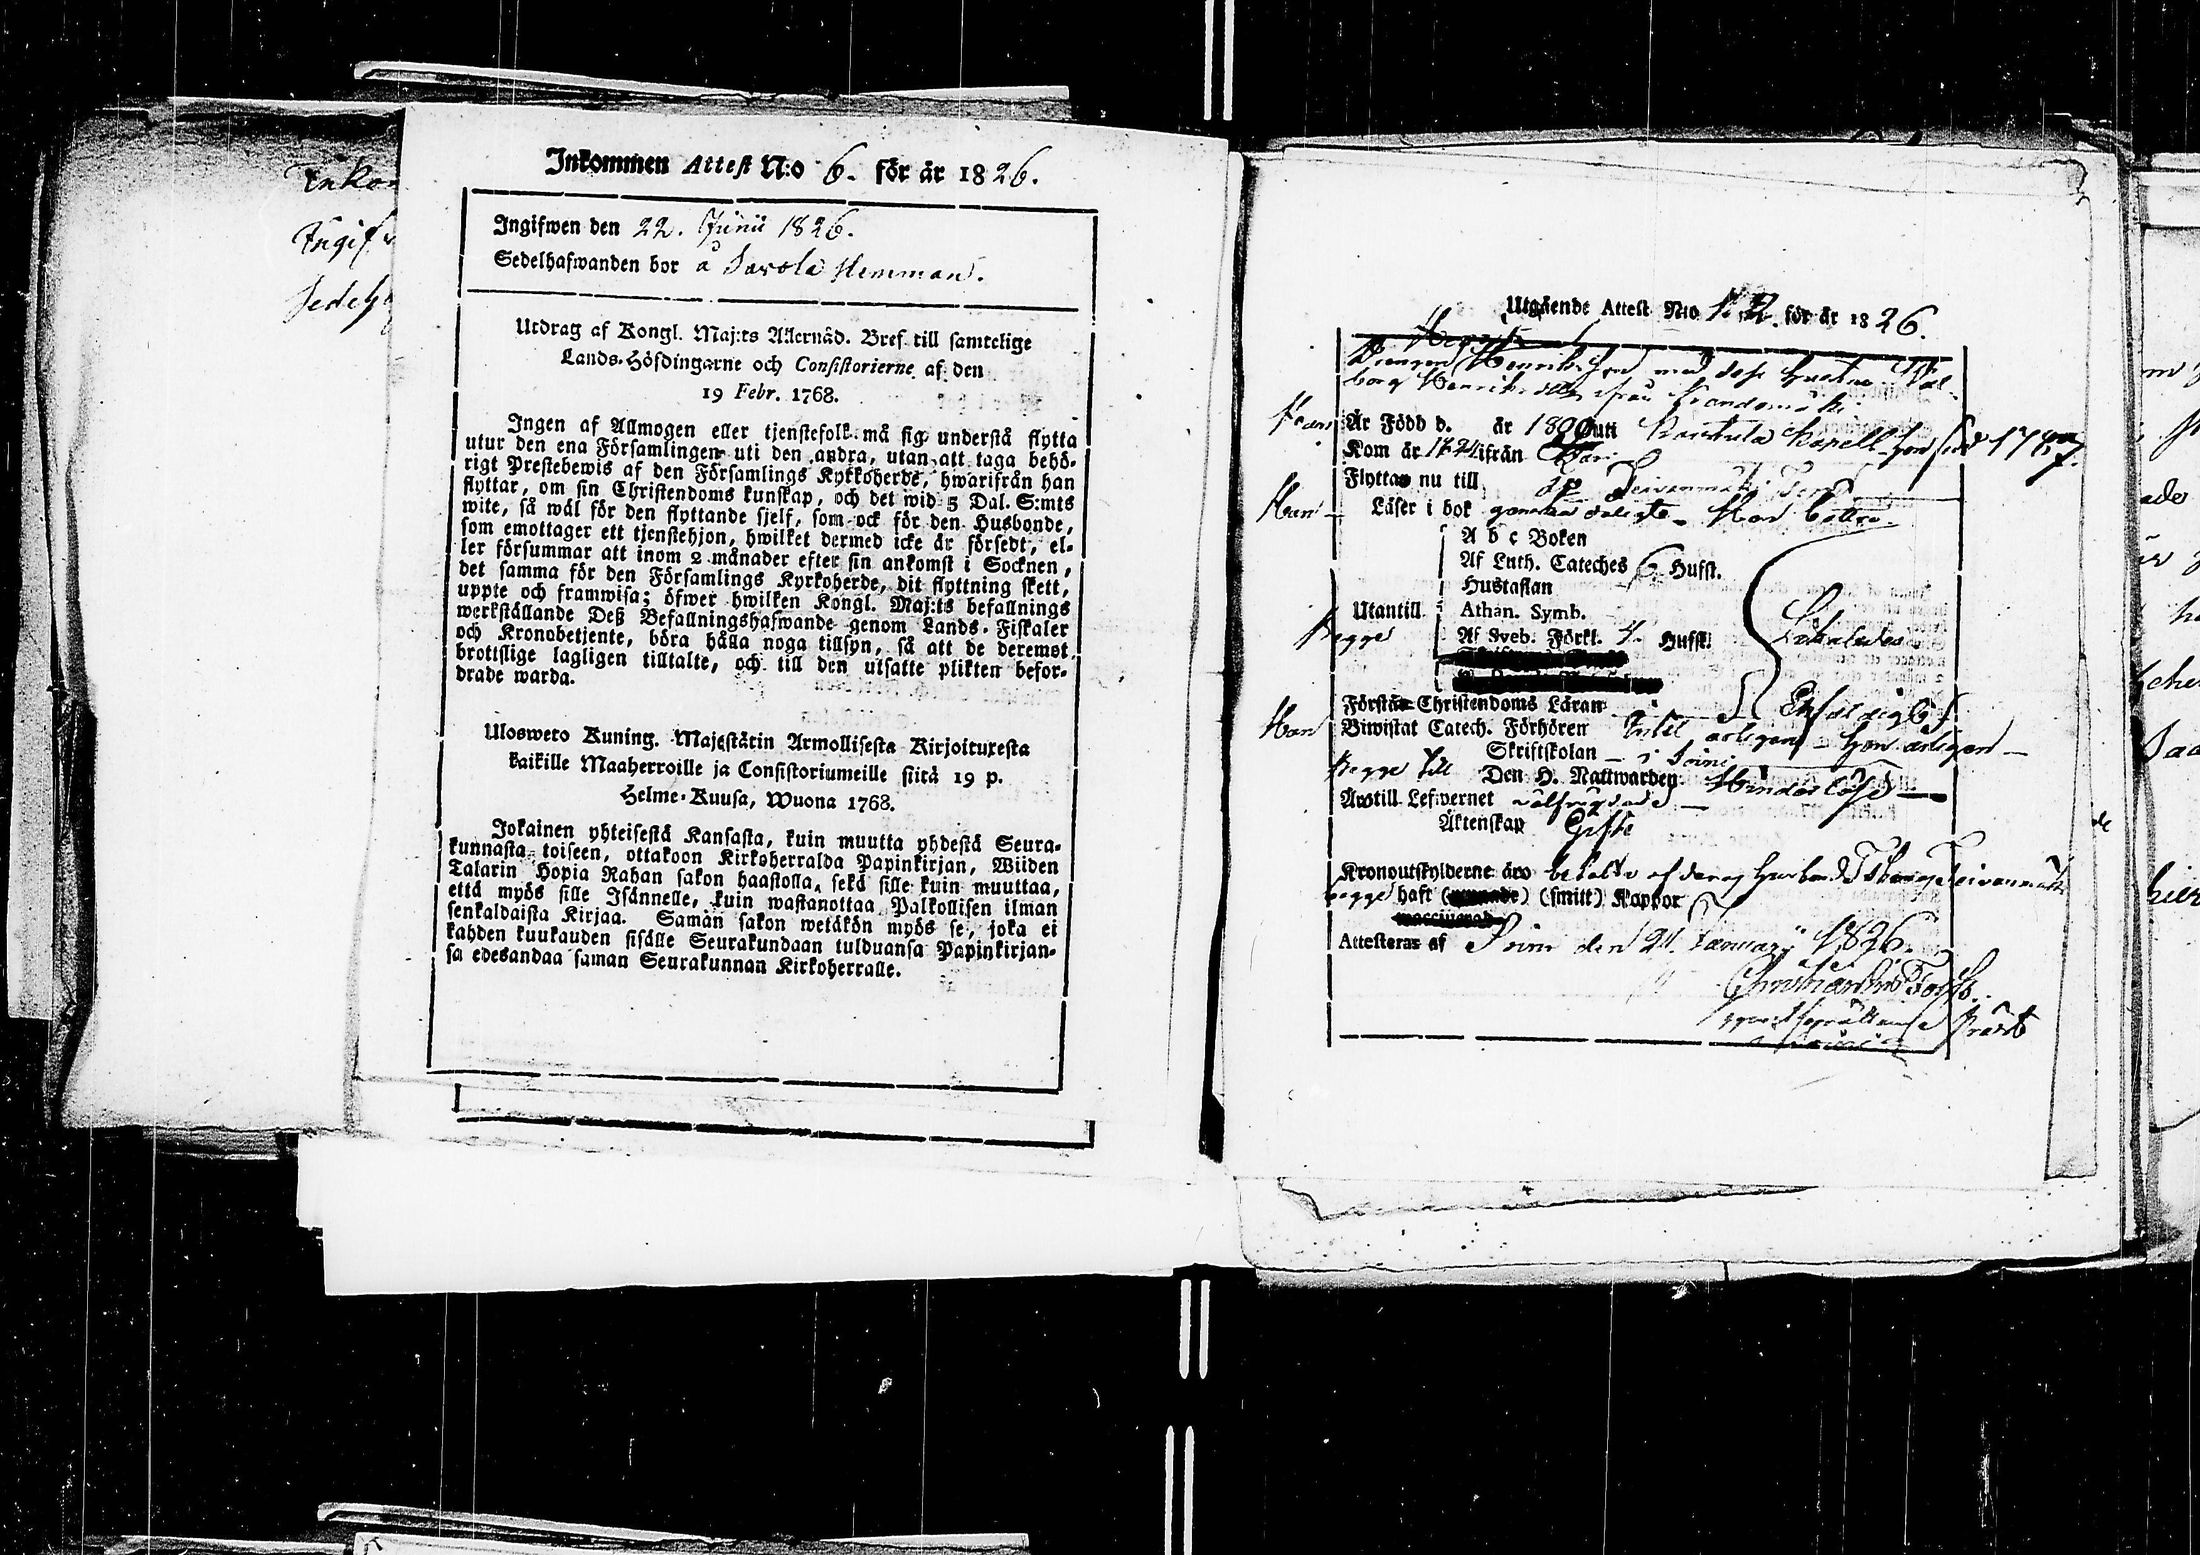 Inkom
Ingif
Sedelh
Inkommen Attest N:o 6. för år 1826.
Ingifwen den 22. Junii 1826.
Sedelhafwanden bor å Savola Hemman.
Utdrag af Kongl. Maj:ts Allernåd. Bref till samtelige
Lands-Höfdingarne och Consistorierne af den
19 Febr. 1768.
Ingen af Allmogen eller tjenstefolk må sig understå flytta
utur den ena Församlingen uti den andra, utan att taga behö-
rigt Prestebewis af den Församlings Kyrkoherde, hwarifrån han
flyttar, om sin Christendoms kunskap, och det wid 5 Dal. S:mts
wite, så wäl för den flyttande sjelf, som ock för den Husbonde,
som emottager ett tjenstehjon, hwilket dermed icke är försedt, el-
ler försummar att inom 2 månader efter sin ankomst i Socknen,
det samma för den Församlings Kyrkoherde, dit flyttning skett,
uppte och framwisa; öfwer hwilken Kongl. Maj:ts befallnings
werkställande Deß Befallningshafwande genom Lands-Fiskaler
och Kronobetjente, böra hålla noga tillsyn, så att de deremot
brottslige lagligen tilltalte, och till den utsatte plikten befor-
drade warda.
Uloswето Kuning. Majestätin Armollisesta Kirjoituxesta
kaikille Maaherroille ja Consistoriumeille siitä 19 p.
Helme-Kuusa, Wuona 1768.
Jokainen yhteisestä Kansasta, kuin muutta yhdestä Seura-
kunnasta toiseen, ottakoon Kirkoherralda Papinkirjan, Wiiden
Talarin Hopia Rahan sakon haastolla, sekä sille kuin muuttaa,
että myös sille Isännelle, kuin wastanottaa Palkollisen ilman
senkaldaista Kirjaa. Samän sakon wetäkön myös se, joka ei
kahden kuukauden sisälle Seurakundaan tulduansa Papinkirjan-
sa edesandaa saman Seurakunnan Kirkoherralle.
Utgående Attest N:o 12. för år 1826.
Drengen Henriksson med dess hustru Val-
borg Henriksdotter ifrån
Han Är Född d. år 1800 uti Kapell hon född 1787.
Kom år ifrån
Flyttar nu till Leivonmäki
Han Läser i bok ganska dåligt. Hon bättre
A b c Boken
Af Luth. Cateches 6 Hufst.
Hustaflan
Utantill Athan. Symb.
Begge Af Sveb. Förkl. 4. Hufst.
Förstå Christendoms Läran Enfaldigt
Han Biwistat Catech. Förhören årligen hon årligen
Skriftskolan i Joini
Begge Till Den H. Nattwarden Hinderlöse
Arotill Lefwernet välfrägdade
Äktenskap Gifte
Kronoutskylderne äro betalte af deras husbonde Leivonmäki
begge haft (smitt) Koppor
Attesteras af Joini den 21 Januarii 1826.
Christian Forss